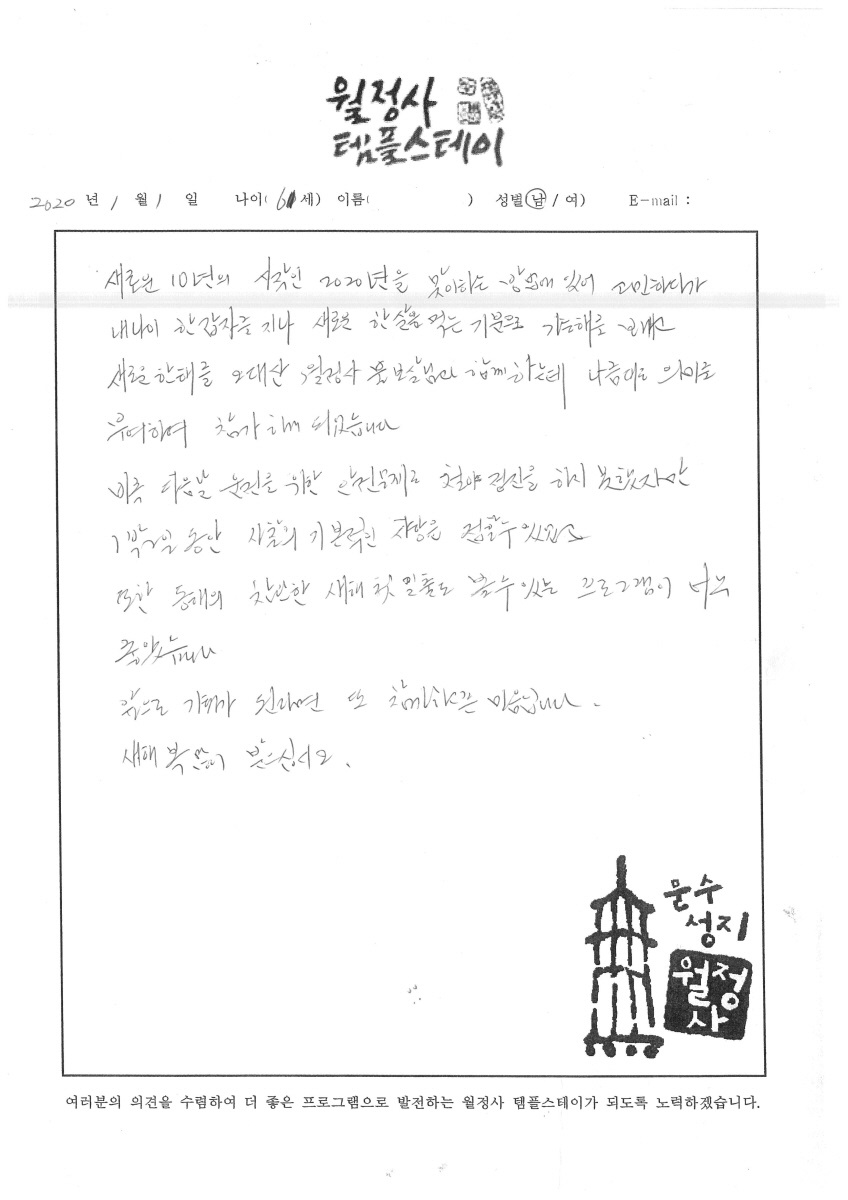 월정사
템플스테이
2020 년 1 월 1 일 나이( 61 세) 이름( ) 성별(남 / 여) E-mail :
새로운 10년의 시작인 2020년을 맞이하는 있어 고민하다가
내나이 한갑자를 지나 새로운 한살을 먹는 기분으로
새로운한해를 오대산 월정사 함께하는데 나름대로 의미를
부여하며 참가 하게 되었습니다
바로 다음날 운전을 위한 안전문제로 철야정진을 하지 못했지만
1박2일 동안 사찰의 기본적인 접할수 있었고
또한 동해의 찬란한 새해 첫 일출도 볼수 있는 프로그램이 너무
좋았습니다
앞으로 기회가 된다면 또 참가하고픈 마음입니다.
새해 복 많이 받으십시오.
문수
성지
월정
사
여러분의 의견을 수렴하여 더 좋은 프로그램으로 발전하는 월정사 템플스테이가 되도록 노력하겠습니다.